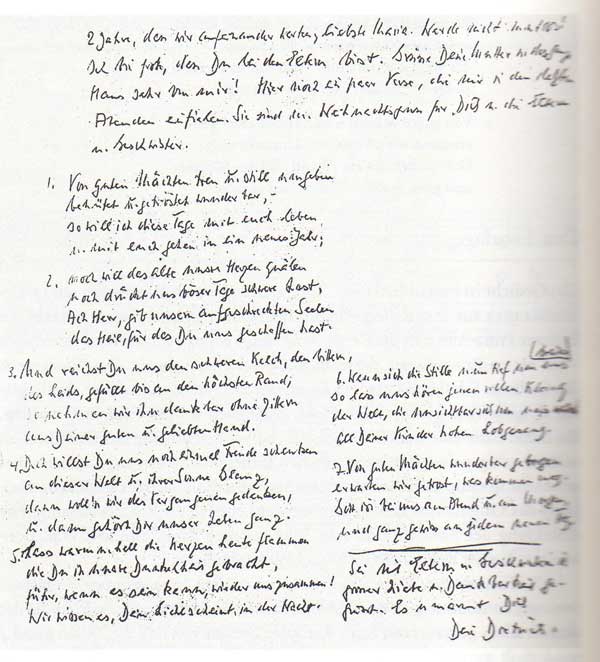 2 Jahre, daß wir aufeinander warten, liebste Maria. Werde nicht mutlos!
Ich bin froh, daß Du bei den Eltern bist. Grüße Deine Mutter u. das ganze
Haus sehr von mir! Hier noch ein paar Verse, die mir in den letzten
Abenden einfielen. Sie sind der Weihnachtsgruß für Dich u. die Eltern
u. Geschwister.
1. Von guten Mächten treu u. still umgeben
behütet u. getröstet wunderbar, -
so will ich diese Tage mit euch leben
u. mit euch gehen in ein neues Jahr;
2. noch will das alte unsre Herzen quälen
noch drückt uns böser Tage schwere Last,
Ach Herr, gib unsern aufgeschreckten Seelen
das Heil, für das Du uns geschaffen hast.
3. Und reichst Du uns den schweren Kelch, den bittern,
des Leids, gefüllt bis an den höchsten Rand,
so nehmen wir ihn dankbar ohne Zittern
aus Deiner guten u. geliebten Hand.
4. Doch willst Du uns noch einmal Freude schenken
an dieser Welt u. ihrer Sonne Glanz,
dann woll'n wir des Vergangenen gedenken,
u. dann gehört Dir unser Leben ganz.
5. Lass warm u. hell die Kerzen heute flammen
die Du in unsre Dunkelheit gebracht,
führ, wenn es sein kann, wieder uns zusammen!
Wir wissen es, Dein Licht scheint in der Nacht.
6. Wenn sich die Stille nun tief um uns
so lass uns hören jenen vollen Klang
der Welt, die unsichtbar sich um uns
all Deiner Kinder hohen Lobgesang.
7. Von guten Mächten wunderbar geborgen
erwarten wir getrost, was kommen mag.
Gott ist bei uns am Abend u. am Morgen,
und ganz gewiss an jedem neuen Tag.
Sei mit Eltern u. Geschwistern in
grosser Liebe u. Dankbarkeit ge-
grüsst. Es umarmt Dich
Dein Dietrich.